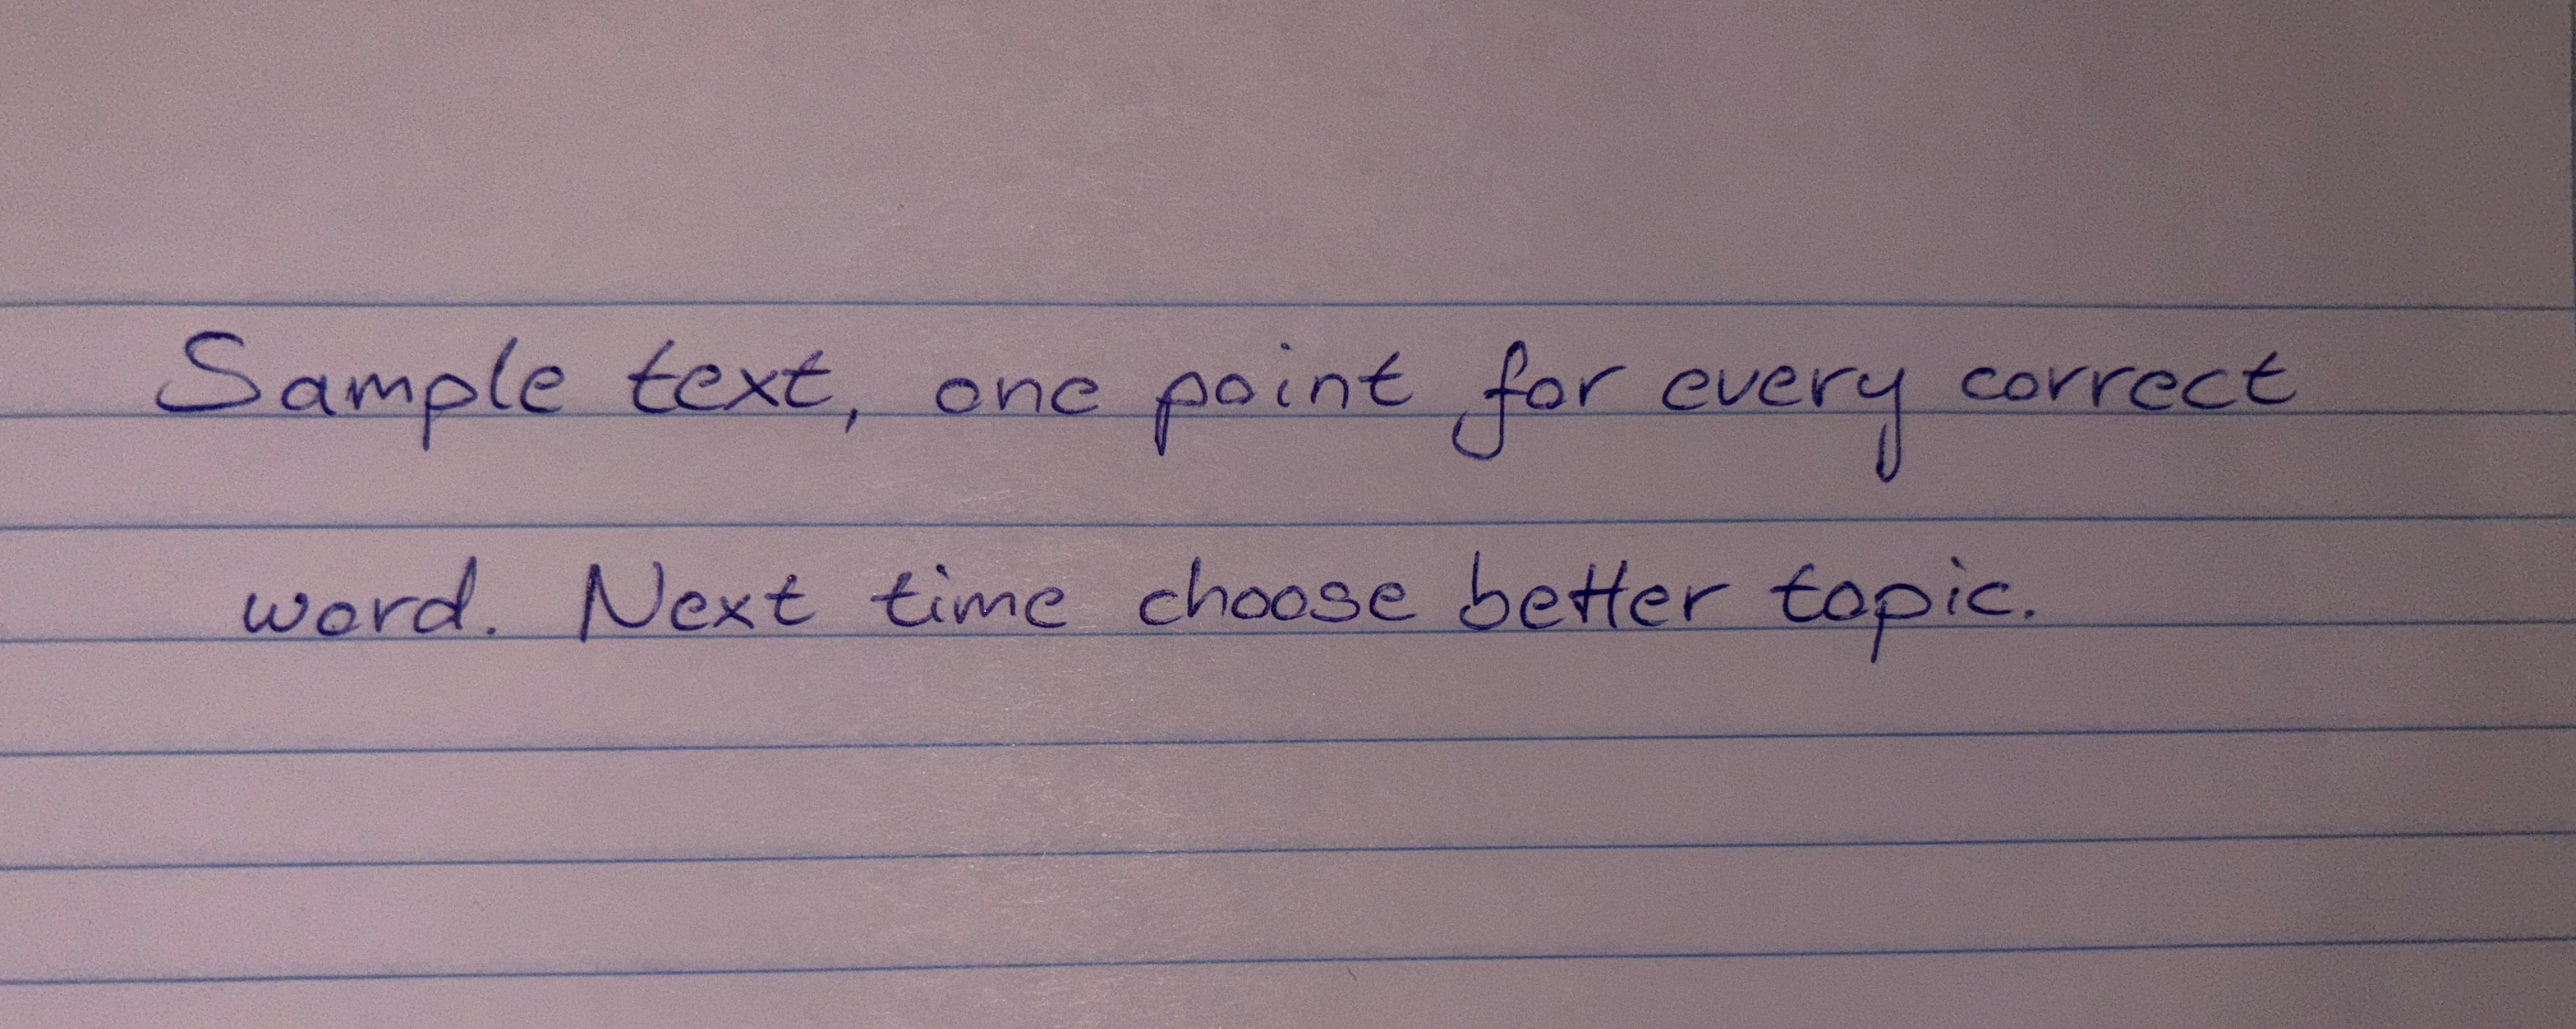 Sample text, one point for every correct
word. Next time choose better topic.